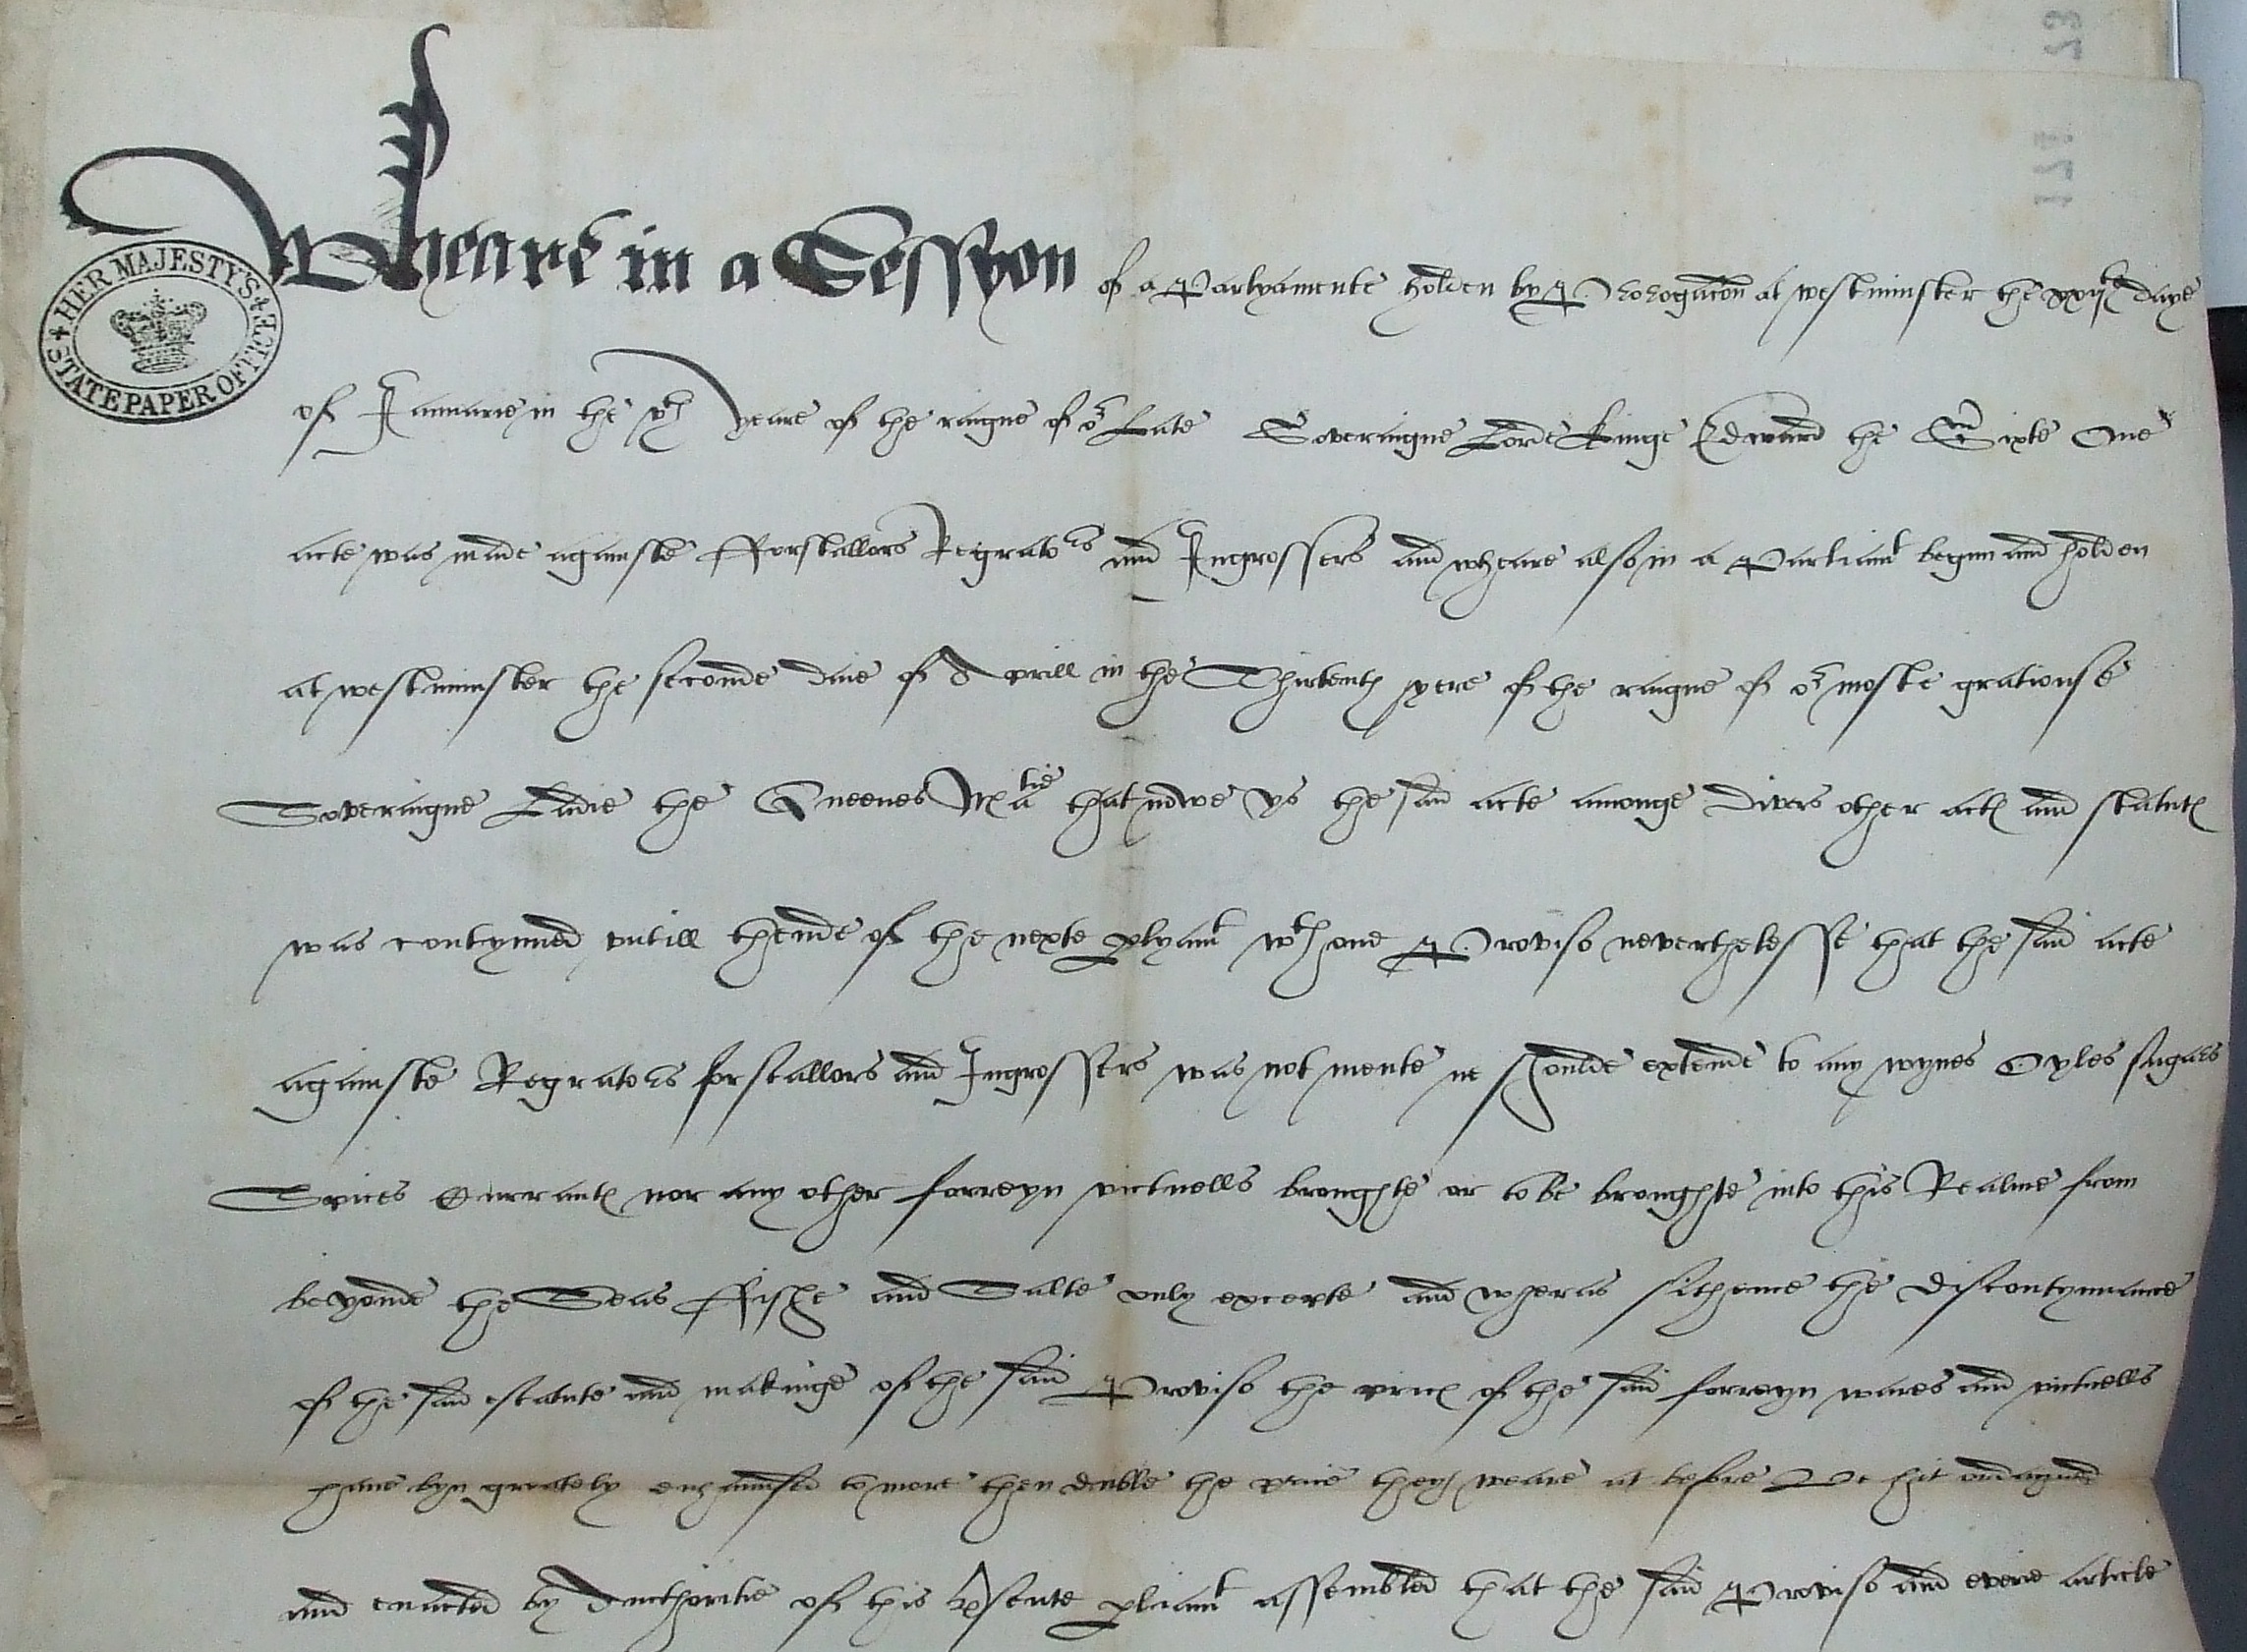 Wheare in a Sessyon of a Parlyamente holden by Prorogacon at westminster the xxiijth daye
of Januarie in the vth yeare of the raigne of or Late Soveraigne Lorde Kinge Edward the Sixte One
acte was made againste fforstallors Regrators and Ingrossers and wheare also in a Parliamt begun and holden
at westminster the seconde daie of Aprill in the Thirtenth yere of the raigne of or moste gratiouse
Soveraigne Ladie the Queenes Matie that nowe ys the said acte amonge divers other actes and statutes
was contynued vntill thende of the nexte plyamt wth one Proviso neverthelesse that the said acte
againste Regrators forstallors and Ingrossers was not mente ne shoulde extende to any wynes Oyles sugars
Spices Currantes nor any other forreyn victuells broughte or to be broughte into this Realme from
beyonde the Seas ffishe and Salte only excepte and wheras sithence the discontynuance
of the said estatute and makinge of the said Proviso the prices of the said forreyn wares and victuells
haue byn greately enhaunsed to more then duble the price they weare at before Be hit ordayned
and enacted by Aucthoritie of this psente pliamt assembled that the said Proviso and everie article
HER MAJESTY'S STATE PAPER OFFICE